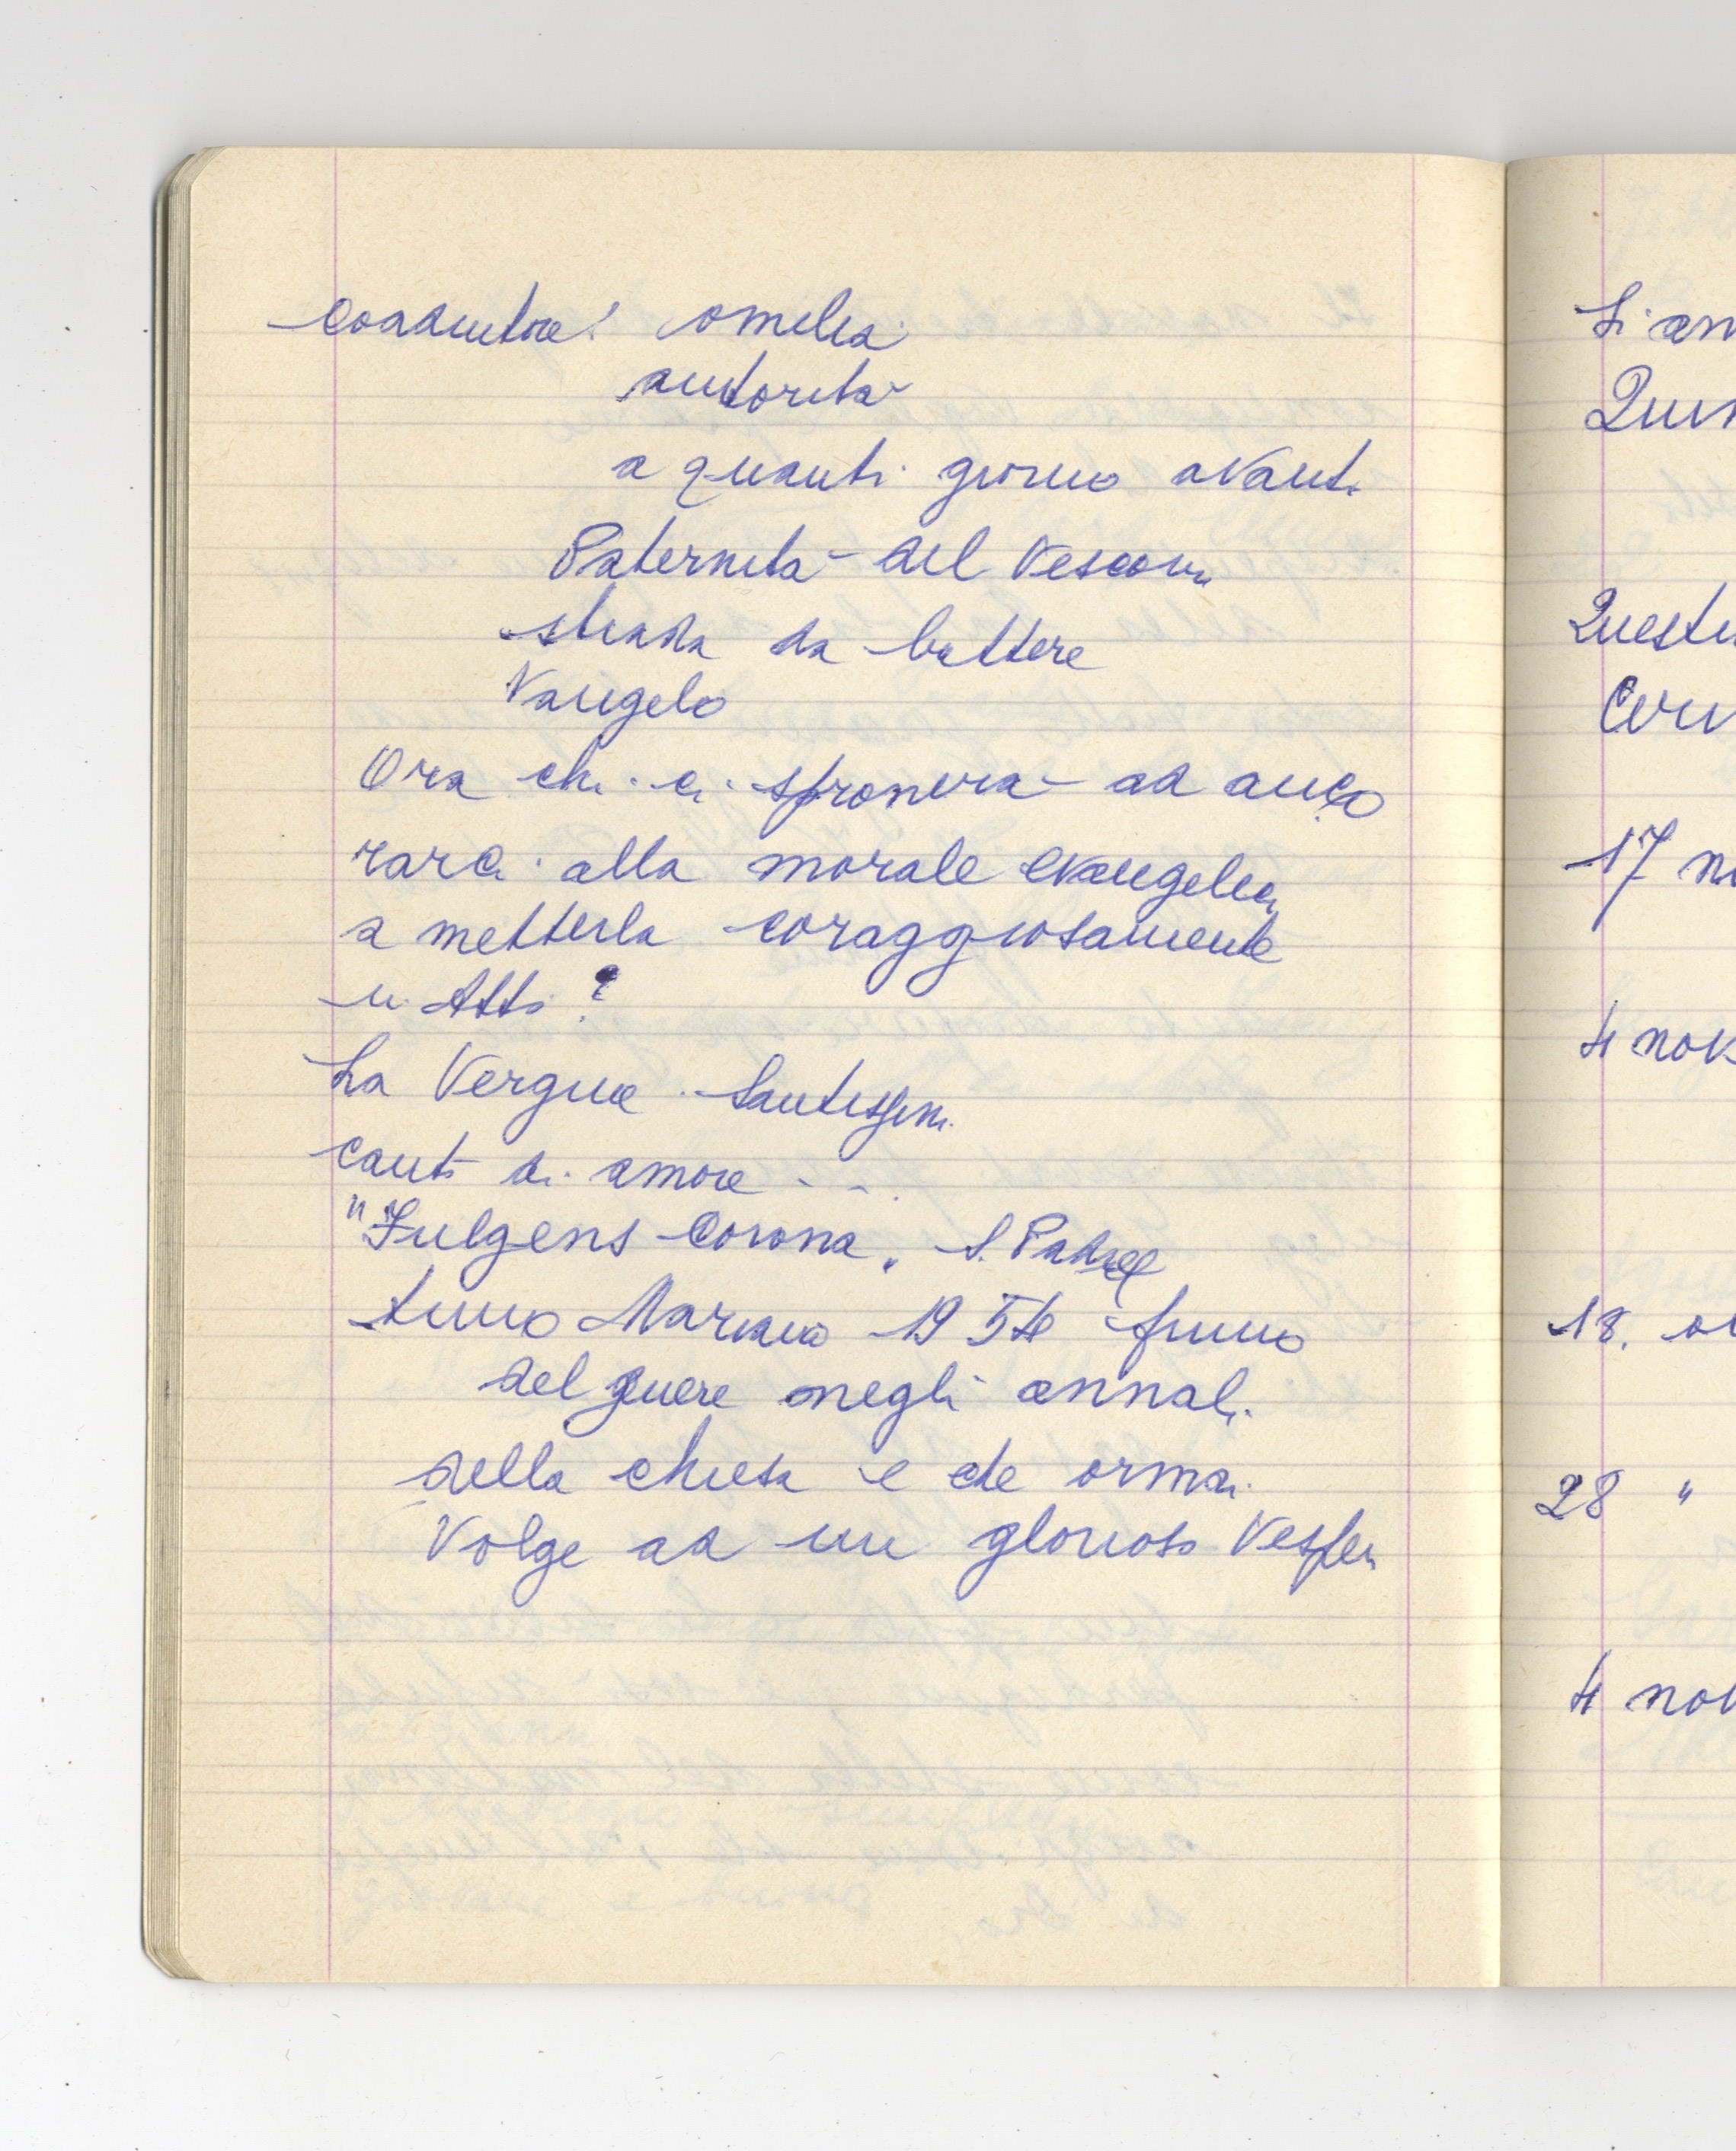 coadiutore: omelia
autorità
a quanti giorno avanti
Paternità del Vescovo
strada da battere
Vangelo
Ora chi ci spronerà ad anco
rarci alla morale evangelica
a metterla coraggiosamente
in Atto?
La Vergine Santissima
canti di amore - - .
"Fulgens Corona" S. Padre
Anno Mariano 1954 primo
del genere negli annali
della chiesa e che ormai
Volge ad un glorioso Vespero
Si am
Quin
Questu
17 no
4 nov
18. o
28 "
4 nov